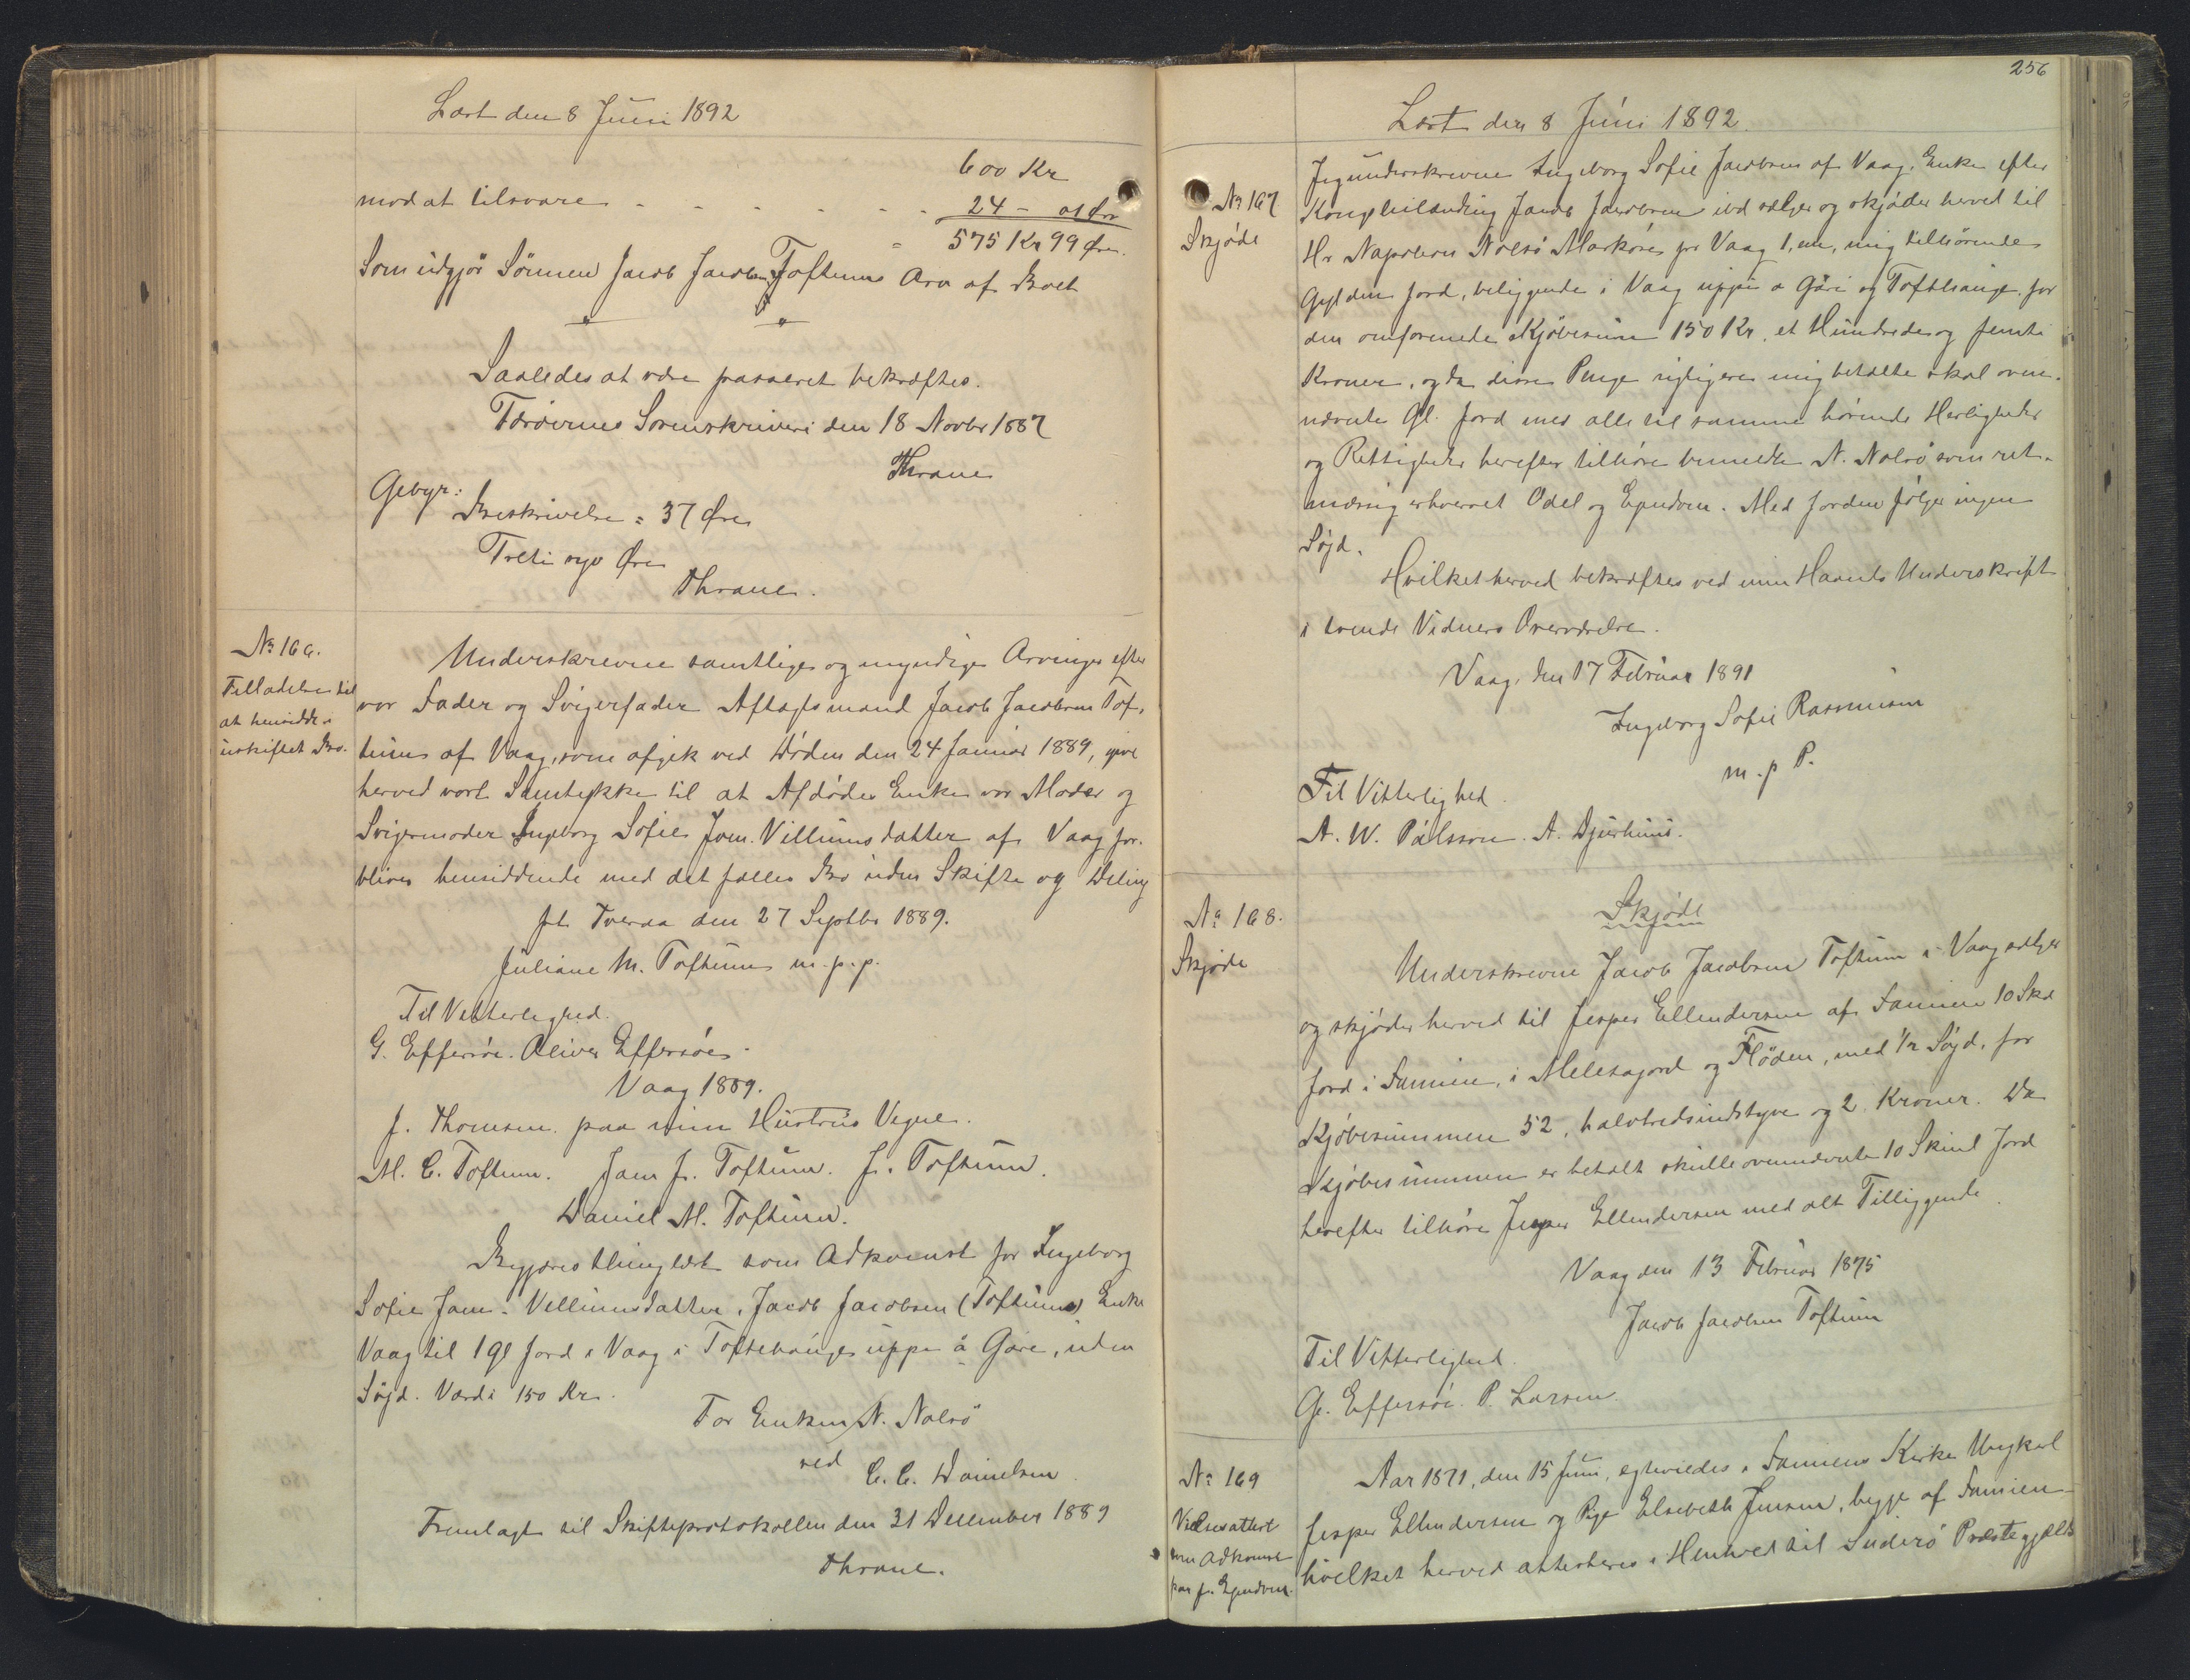 Læst den 8 Juni 1892
600 Kr
mod at tilsvare - - - - - - 24 - 01 Øre
= 575 Kr 99 Øre.
Som udgjør Sønnen Jacob Jacobsen Toftums Arv af Boet
Saaledes at være passeret bekræftes.
Færøernes Sorenskriveri den 18 Novbr 1887
Thrane
Gebyr:
Beskrivelse = 37 Øre
Treti syv Øre
Thrane.
No 166.
Tilladelse til
at hensidde i
uskiftet Bo.
Underskrevne samtlige og myndige Arvinger efter
vor Fader og Svigerfader Aftagtsmand Jacob Jacobsen Tof-
tum af Vaag, som afgik ved Døden den 24 Januar 1889, give
herved vort Samtykke til at Afdødes Enke vor Moder og
Svigermoder Ingeborg Sofie Joen. Villiumsdatter af Vaag for-
bliver hensiddende med det fælles Bo uden Skifte og Deling
pt. Tveraa den 27 Septbr 1889.
Juliane M. Toftum m.p.p.
Til Vitterlighed.
G. Effersøe. Oliver Effersøe.
Vaag 1889.
J. Thomsen paa min Hustrus Vegne.
M. C. Toftum. Joen J. Toftum. J. Toftum.
Daniel M. Toftum.
Begjæres thinglæst som Adkomst for Ingeborg
Sofie Joen. Villiumsdatter, Jacob Jacobsen (Toftums) Enke
Vaag til 1 Gl Jord i Vaag i Toftehauge uppe á Gøre, uden
Søjd. Værdi 150 Kr.
For Enken N. Nolsö
ved C. C. Danielsen.
Fremlagt til Skifteprotokollen den 31 December 1889
Thrane.
256
Læst den 8 Juni 1892.
No 167
Skjøde
Jeg underskrevne Ingeborg Sofie Jacobsen af Vaag, Enke efter
Jacob Jacobsen ibd sælger og skjøder herved til
Hr Napoleon Nolsø Markøre pr Vaag 1, een, mig tilhørende
Gylden Jord, beliggende i Vaag uppi a Gøri og Tofthauge, for
den omforenede Kjøbesum 150 Kr. et Hundrede og femti
Kroner, og da disse Penge rigtig ere mig betalte skal oven-
nævnte Gl. Jord med alle til samme hørende Herligheder
og Rettigheder herefter tilhøre bemeldte N. Nolsø som ret-
mæssig erhvervet Odel og Ejendom. Med Jorden følger ingen
Søjd.
Hvilket herved bekræftes ved min Haands Underskrift
i tvende Vidners Overværelse.
Vaag, den 17 Februar 1891
Ingeborg Sofie Rasmusen
m. p P.
Til Vitterlighed.
A. W. Pálsson. A. Djurhuus.
No 168.
Skjøde
Skjøde
Underskrevne Jacob Jacobsen Toftum i Vaag sælger
og skjøder herved til Jesper Ellendersen af Famien 10 Skd
Jord i Famien, i Melesagord og Fløden, med 1/2 Søjd, for
Kjøbesummen 52, halvtredsindstyve og 2 Kroner. Da
Kjøbesummen er betalt skulle ovennævnte 10 Skind Jord
herefter tilhøre Jesper Ellendersen med alt Tilliggende.
Vaag den 13 Februar 1875
Jacob Jacobsen Toftum
Til Vitterlighed.
G. Effersøe. P. Larsen.
No 169
Vielsesattest
som Adkomst
paa f. Ejendom.
Aar 1871, den 15 Juni, egteviedes i Famiens Kirke Ungkarl
Jesper Ellendersen og Pige Elsebeth Jensen, begge af Famien
hvilket herved attesteres i Henhold til Suderø Præstegjelds